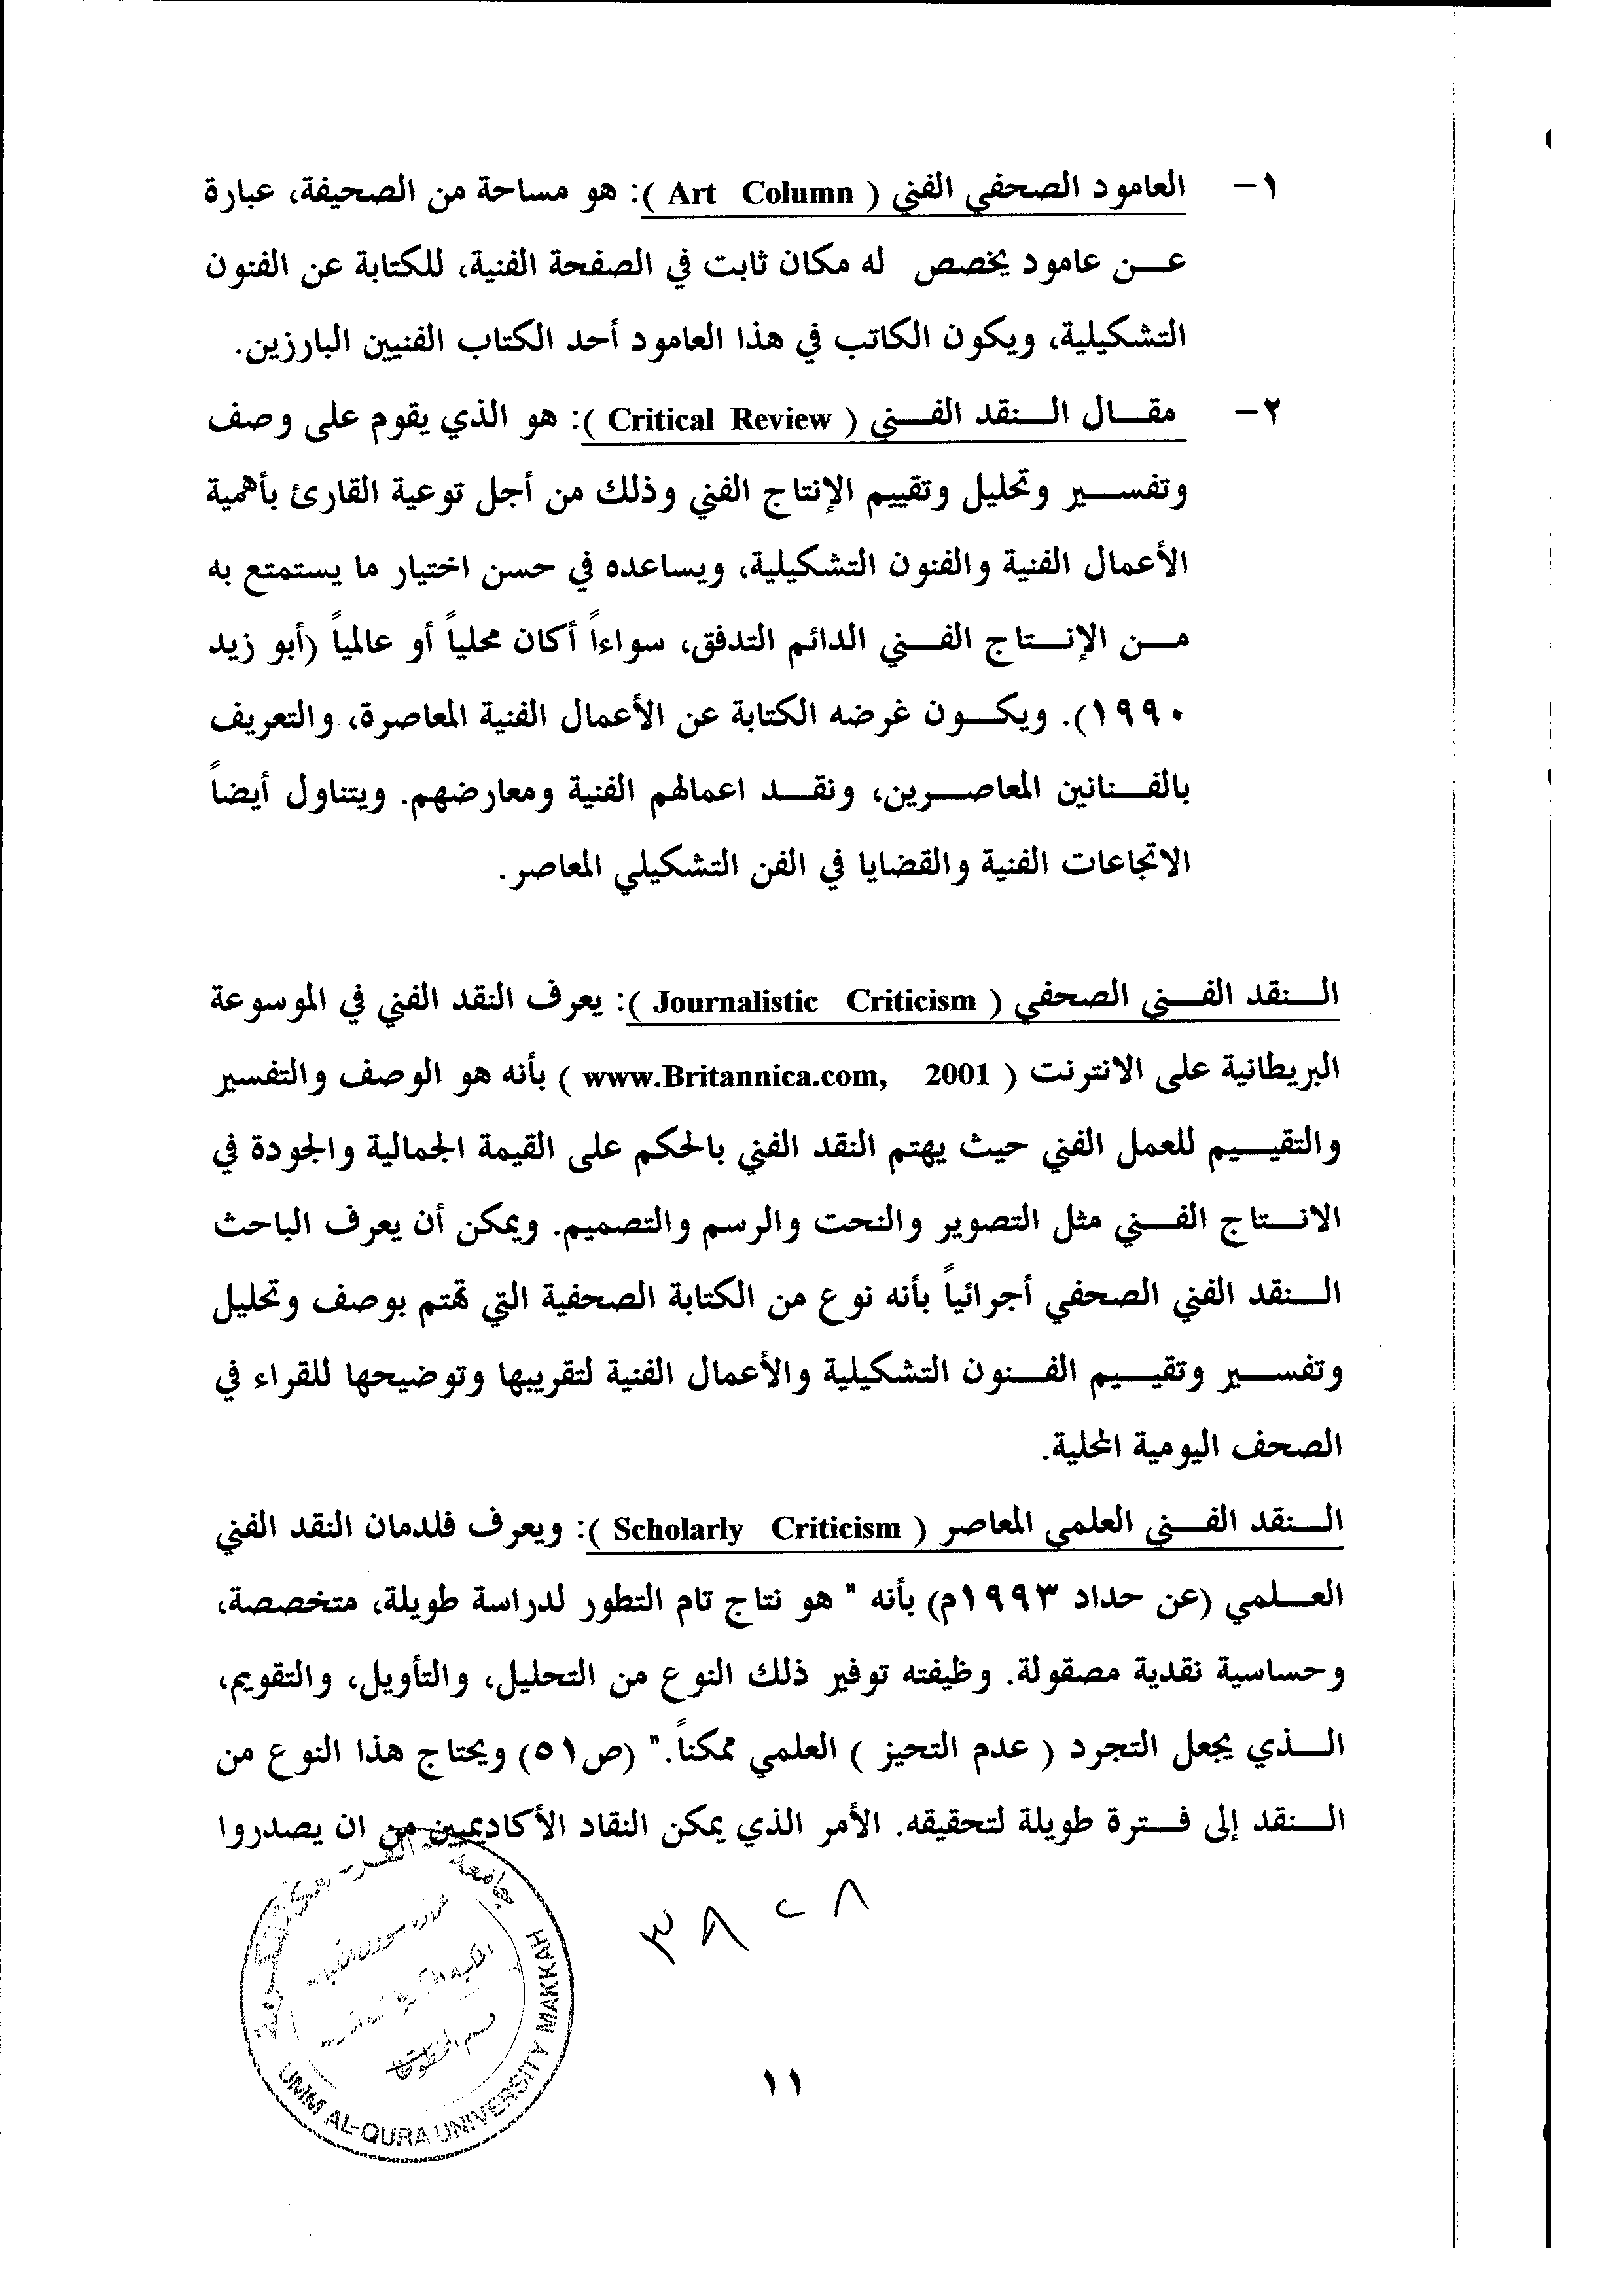 ١- العامود الصحفي الفني ( Art Column ): هو مساحة من الصحيفة، عبارة
عن عامود يخصص له مكان ثابت في الصفحة الفنية، للكتابة عن الفنون
التشكيلية، ويكون الكاتب في هذا العامود أحد الكتاب الفنيين البارزين.
٢- مقال النقد الفني ( Critical Review ): هو الذي يقوم على وصف
وتفسير وتحليل وتقييم الإنتاج الفني وذلك من أجل توعية القارئ بأهمية
الأعمال الفنية والفنون التشكيلية، ويساعده في حسن اختيار ما يستمتع به
من الإنتاج الفني الدائم التدفق، سواءاً أكان محلياً أو عالمياً (أبو زيد
١٩٩٠). ويكون غرضه الكتابة عن الأعمال الفنية المعاصرة، والتعريف
بالفنانين المعاصرين، ونقد اعمالهم الفنية ومعارضهم. ويتناول أيضاً
الاتجاعات الفنية والقضايا في الفن التشكيلي المعاصر.
النقد الفني الصحفي ( Journalistic Criticism ): يعرف النقد الفني في الموسوعة
البريطانية على الانترنت ( www.Britannica.com, 2001 ) بأنه هو الوصف والتفسير
والتقييم للعمل الفني حيث يهتم النقد الفني بالحكم على القيمة الجمالية والجودة في
الانتاج الفني مثل التصوير والنحت والرسم والتصميم. ويمكن أن يعرف الباحث
النقد الفني الصحفي أجرائياً بأنه نوع من الكتابة الصحفية التي تهتم بوصف وتحليل
وتفسير وتقييم الفنون التشكيلية والأعمال الفنية لتقريبها وتوضيحها للقراء في
الصحف اليومية المحلية.
النقد الفني العلمي المعاصر ( Scholarly Criticism ): ويعرف فلدمان النقد الفني
العلمي (عن حداد ١٩٩٣م) بأنه " هو نتاج تام التطور لدراسة طويلة، متخصصة،
وحساسية نقدية مصقولة. وظيفته توفير ذلك النوع من التحليل، والتأويل، والتقويم،
الذي يجعل التجرد ( عدم التحيز ) العلمي ممكناً." (ص٥١) ويحتاج هذا النوع من
النقد إلى فترة طويلة لتحقيقه. الأمر الذي يمكن النقاد الأكاديميين من ان يصدروا
UMM AL-QURA UNIVERSITY MAKKAH
١١